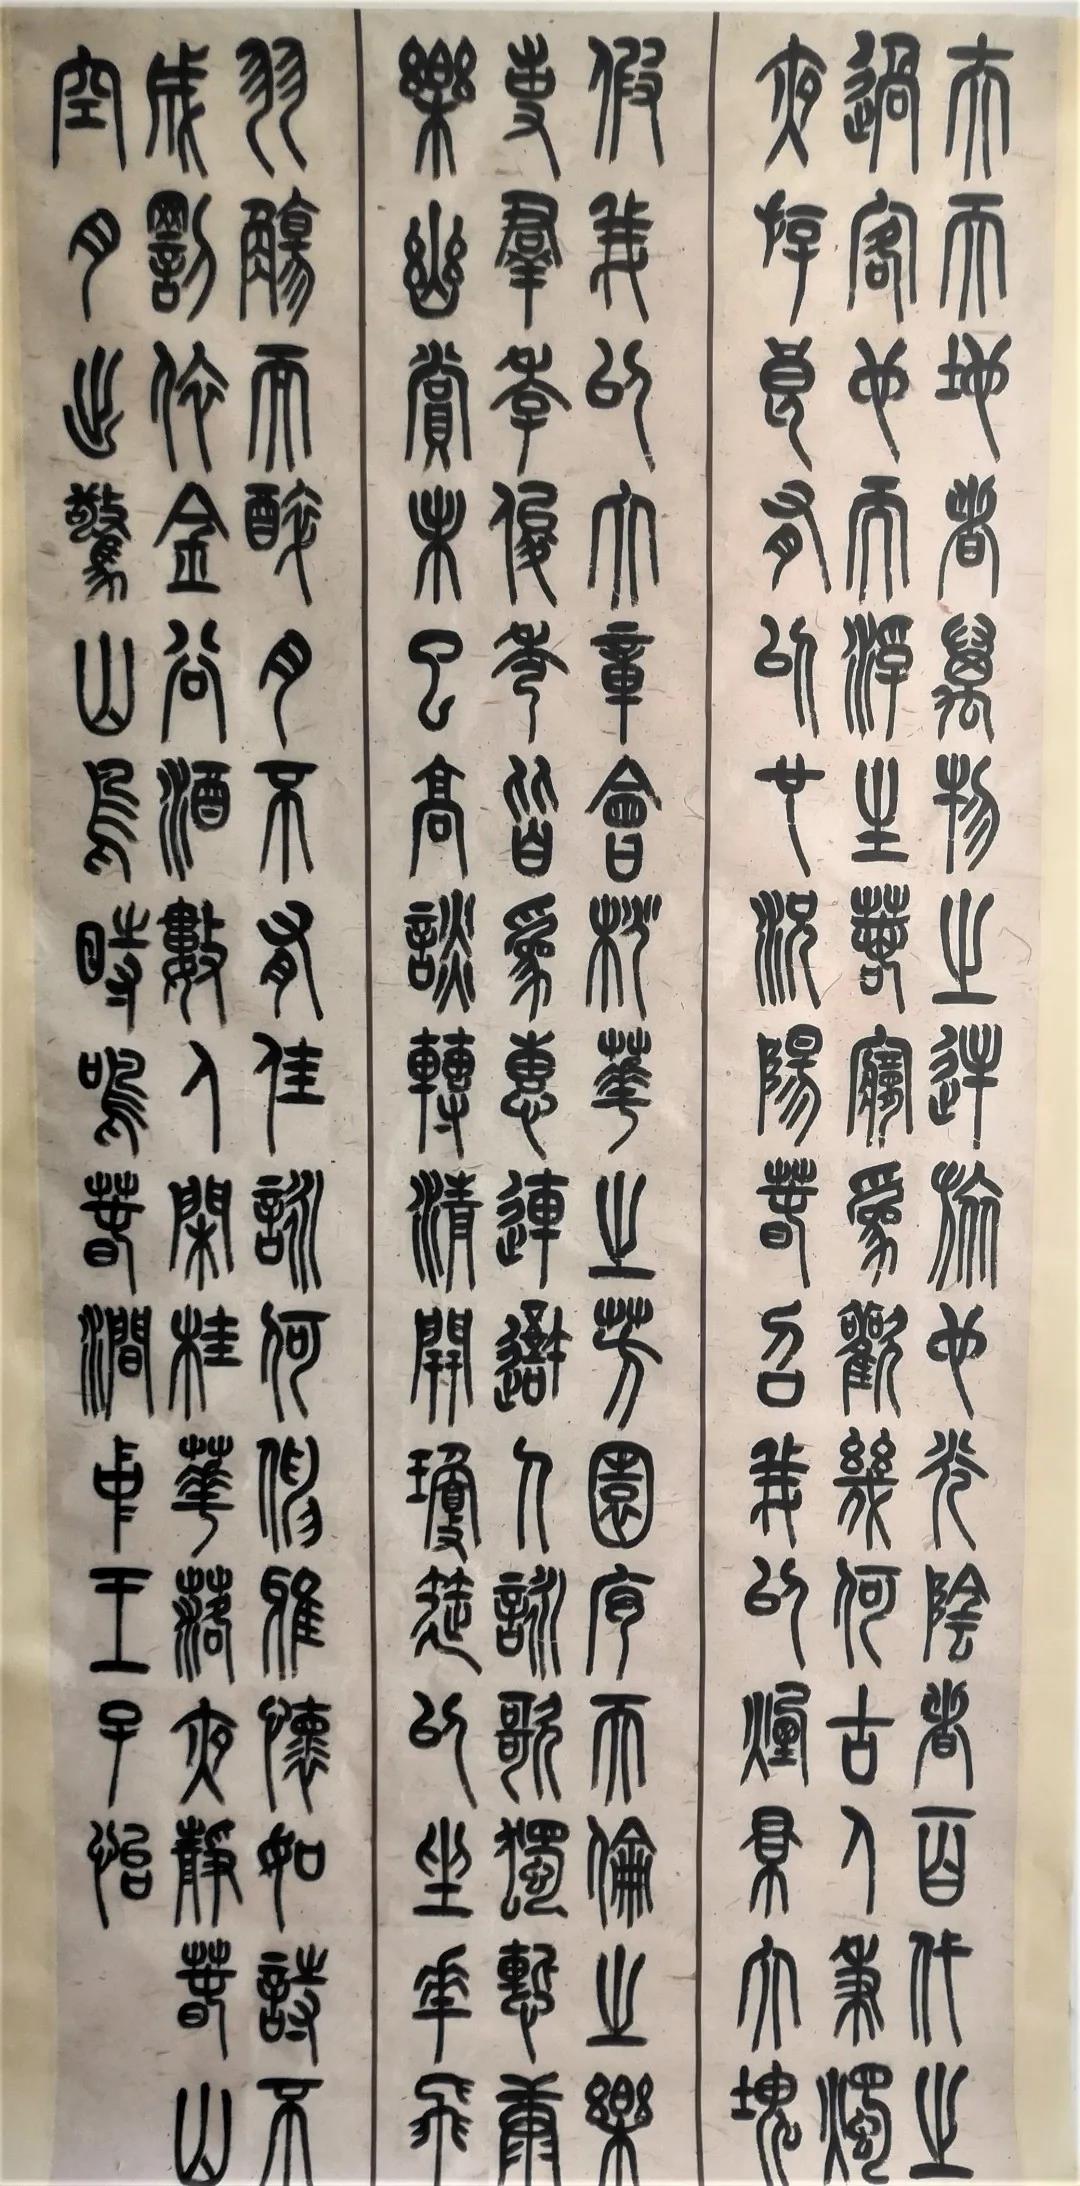 夫天地者萬物之逆旅也光陰者百代之
過客也而浮生若夢爲歡幾何古人秉燭
夜遊良有以也況陽春召我以煙景大塊
假我以文章會桃華之芳園序天倫之樂
事羣季俊秀皆爲惠連吾人詠歌獨慚康
樂幽賞未已高談轉清開瓊筵以坐華飛
羽觴而醉月不有佳詠何傷雅懷如詩不
成罰依金谷酒數人閑桂華落夜靜春山
空月出驚山鳥時鳴春澗中王子怡